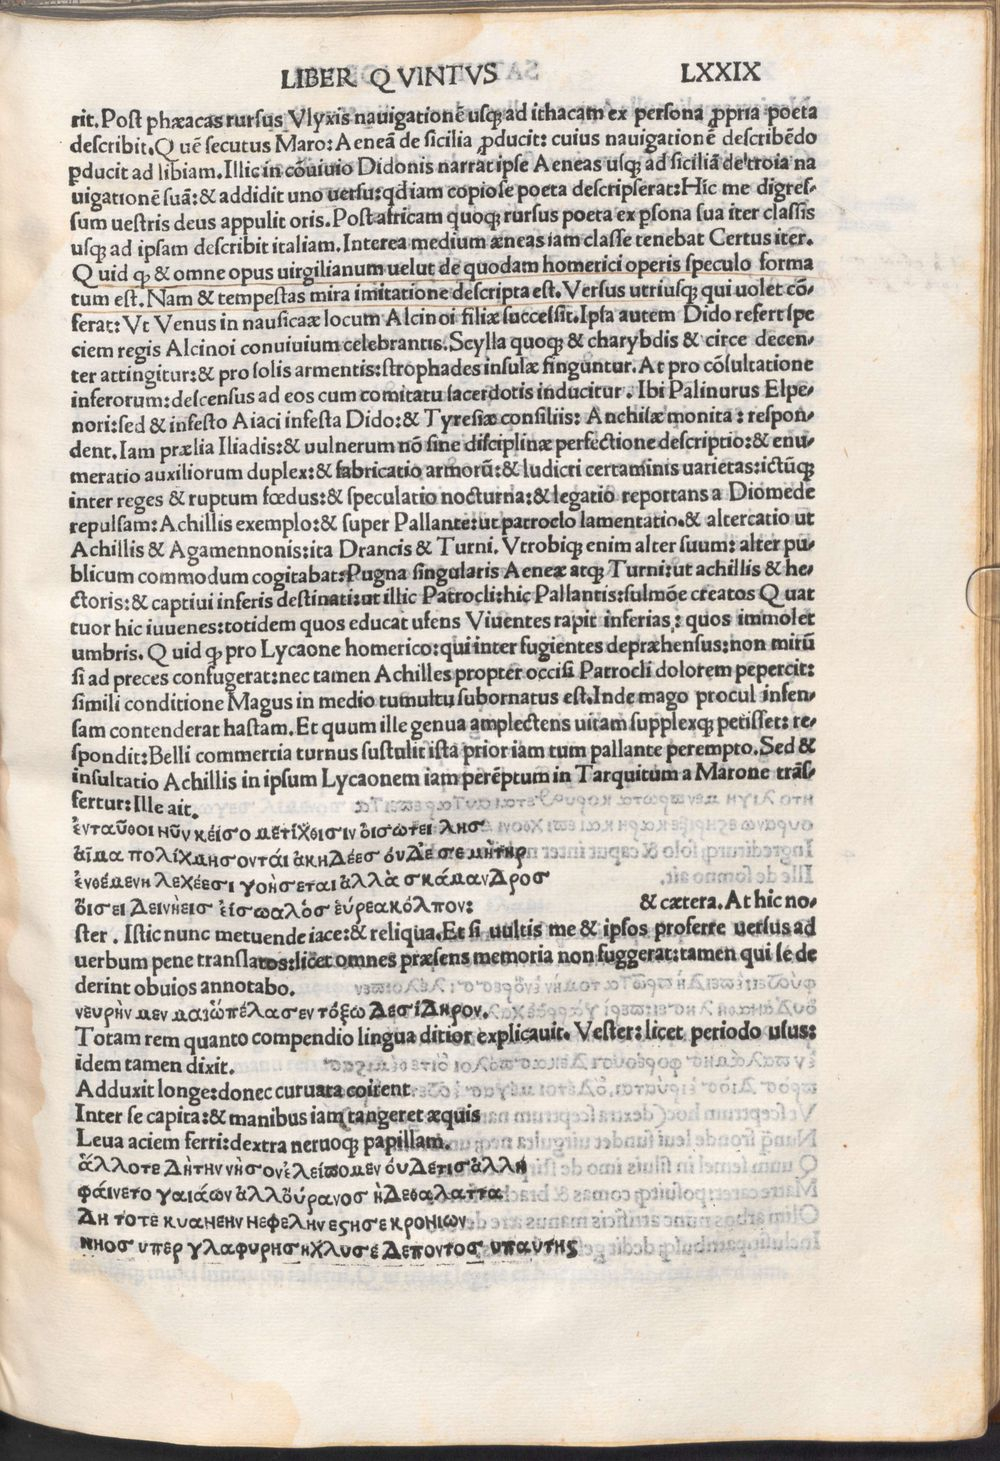 LIBER QVINTVS LXXIX
rit. Post phæacas rursus Vlyxis nauigationē usqꝫ ad ithacam ex persona ꝓpria poeta
describit. Q uē secutus Maro: Aeneā de sicilia ꝓducit: cuius nauigationē describēdo
ꝑducit ad libiam. Illic in cōuiuio Didonis narrat ipse Aeneas usqꝫ ad siciliā de troia na
uigationē suā: & addidit uno uersu: qd iam copiose poeta descripserat: Hic me digres-
sum uestris deus appulit oris. Post africam quoqꝫ rursus poeta ex ꝑsona sua iter classis
usqꝫ ad ipsam describit italiam. Interea medium æneas iam classe tenebat Certus iter.
Q uid qꝫ & omne opus uirgilianum uelut de quodam homerici operis speculo forma
tum est. Nam & tempestas mira imitatione descripta est. Versus utriusqꝫ qui uolet cō-
ferat: Vt Venus in nausicaæ locum Alcinoi filiæ successit. Ipsa autem Dido refert spe
ciem regis Alcinoi conuiuium celebrantis. Scylla quoqꝫ & charybdis & circe decen-
ter attingitur: & pro solis armentis: strophades insulæ finguntur. At pro cōsultatione
inferorum: descensus ad eos cum comitatu sacerdotis inducitur. Ibi Palinurus Elpe-
nori: sed & infesto Aiaci infesta Dido: & Tyresiæ consiliis: Anchisæ monita: respon-
dent. Iam prælia Iliadis: & uulnerum nō sine disciplinæ perfectione descriptio: & enu-
meratio auxiliorum duplex: & fabricatio armorū: & ludicri certaminis uarietas: ictūqꝫ
inter reges & ruptum fœdus: & speculatio nocturna: & legatio reportans a Diomede
repulsam: Achillis exemplo: & super Pallante: ut patroclo lamentatio. & altercatio ut
Achillis & Agamennonis: ita Drancis & Turni. Vtrobiqꝫ enim alter suum: alter pu-
blicum commodum cogitabat: Pugna singularis Aeneæ atqꝫ Turni: ut achillis & he-
ctoris: & captiui inferis destinati: ut illic Patrocli: hic Pallantis: sulmōe creatos Q uat
tuor hic iuuenes: totidem quos educat ufens Viuentes rapit inferias: quos immolet
umbris. Q uid qꝫ pro Lycaone homerico: qui inter fugientes depræhensus: non mirū
si ad preces confugerat: nec tamen Achilles propter occisi Patrocli dolorem pepercit:
simili conditione Magus in medio tumultu subornatus est. Inde mago procul infen-
sam contenderat hastam. Et quum ille genua amplectens uitam supplexqꝫ petisset: re-
spondit: Belli commertia turnus sustulit ista prior iam tum pallante perempto. Sed &
insultatio Achillis in ipsum Lycaonem iam perēptum in Tarquitum a Marone trās-
fertur: Ille ait.
ἐνταῦθοι νῦν κεῖσο μετίχθσιν ὁισωτει λησ
ἀῖμα πολίχμησονται ἀκηδέεσ ὀυδε σε μήτηρ
ἐνθέμενη λεχέεσι γοήσεται ἀλλὰ σκάμανδροσ
ὀισει δεινήεισ ἐίσωαλὸσ ἐυρεα κόλπον: & cætera. At hic no-
ster. Istic nunc metuende iace: & reliqua. Et si uultis me & ipsos proferre uersus ad
uerbum pene translatos: licet omnes præsens memoria non suggerat: tamen qui se de
derint obuios annotabo.
νευρὴν μεν μαζῶπέλασεν τόξω δεσίδηρον.
Totam rem quanto compendio lingua ditior explicauit. Vester: licet periodo usus:
idem tamen dixit.
Adduxit longe: donec curuata coirent
Inter se capita: & manibus iam tangeret æquis
Leua aciem ferri: dextra neruoqꝫ papillam.
ἄλλοτε δὴτην νησονἐλείπομεν ὀυδετισ ἄλλη
φάινετο γαιάων ἀλλὀύρανοσ ἠδεθαλαττα
δη τοτε κυανεην νεφελην εϛησε κρονιων
νηοσ υπερ γλαφυρησ ηχλυσε δεποντοσ υπαυτης